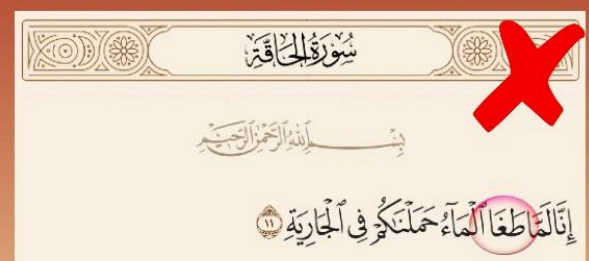 سُورَةُ الحَاقَّةِ
بِسْمِ اللَّهِ الرَّحْمَٰنِ الرَّحِيمِ
إِنَّا لَمَّا طَغَا ٱلْمَآءُ حَمَلْنَٰكُمْ فِى ٱلْجَارِيَةِ ١١